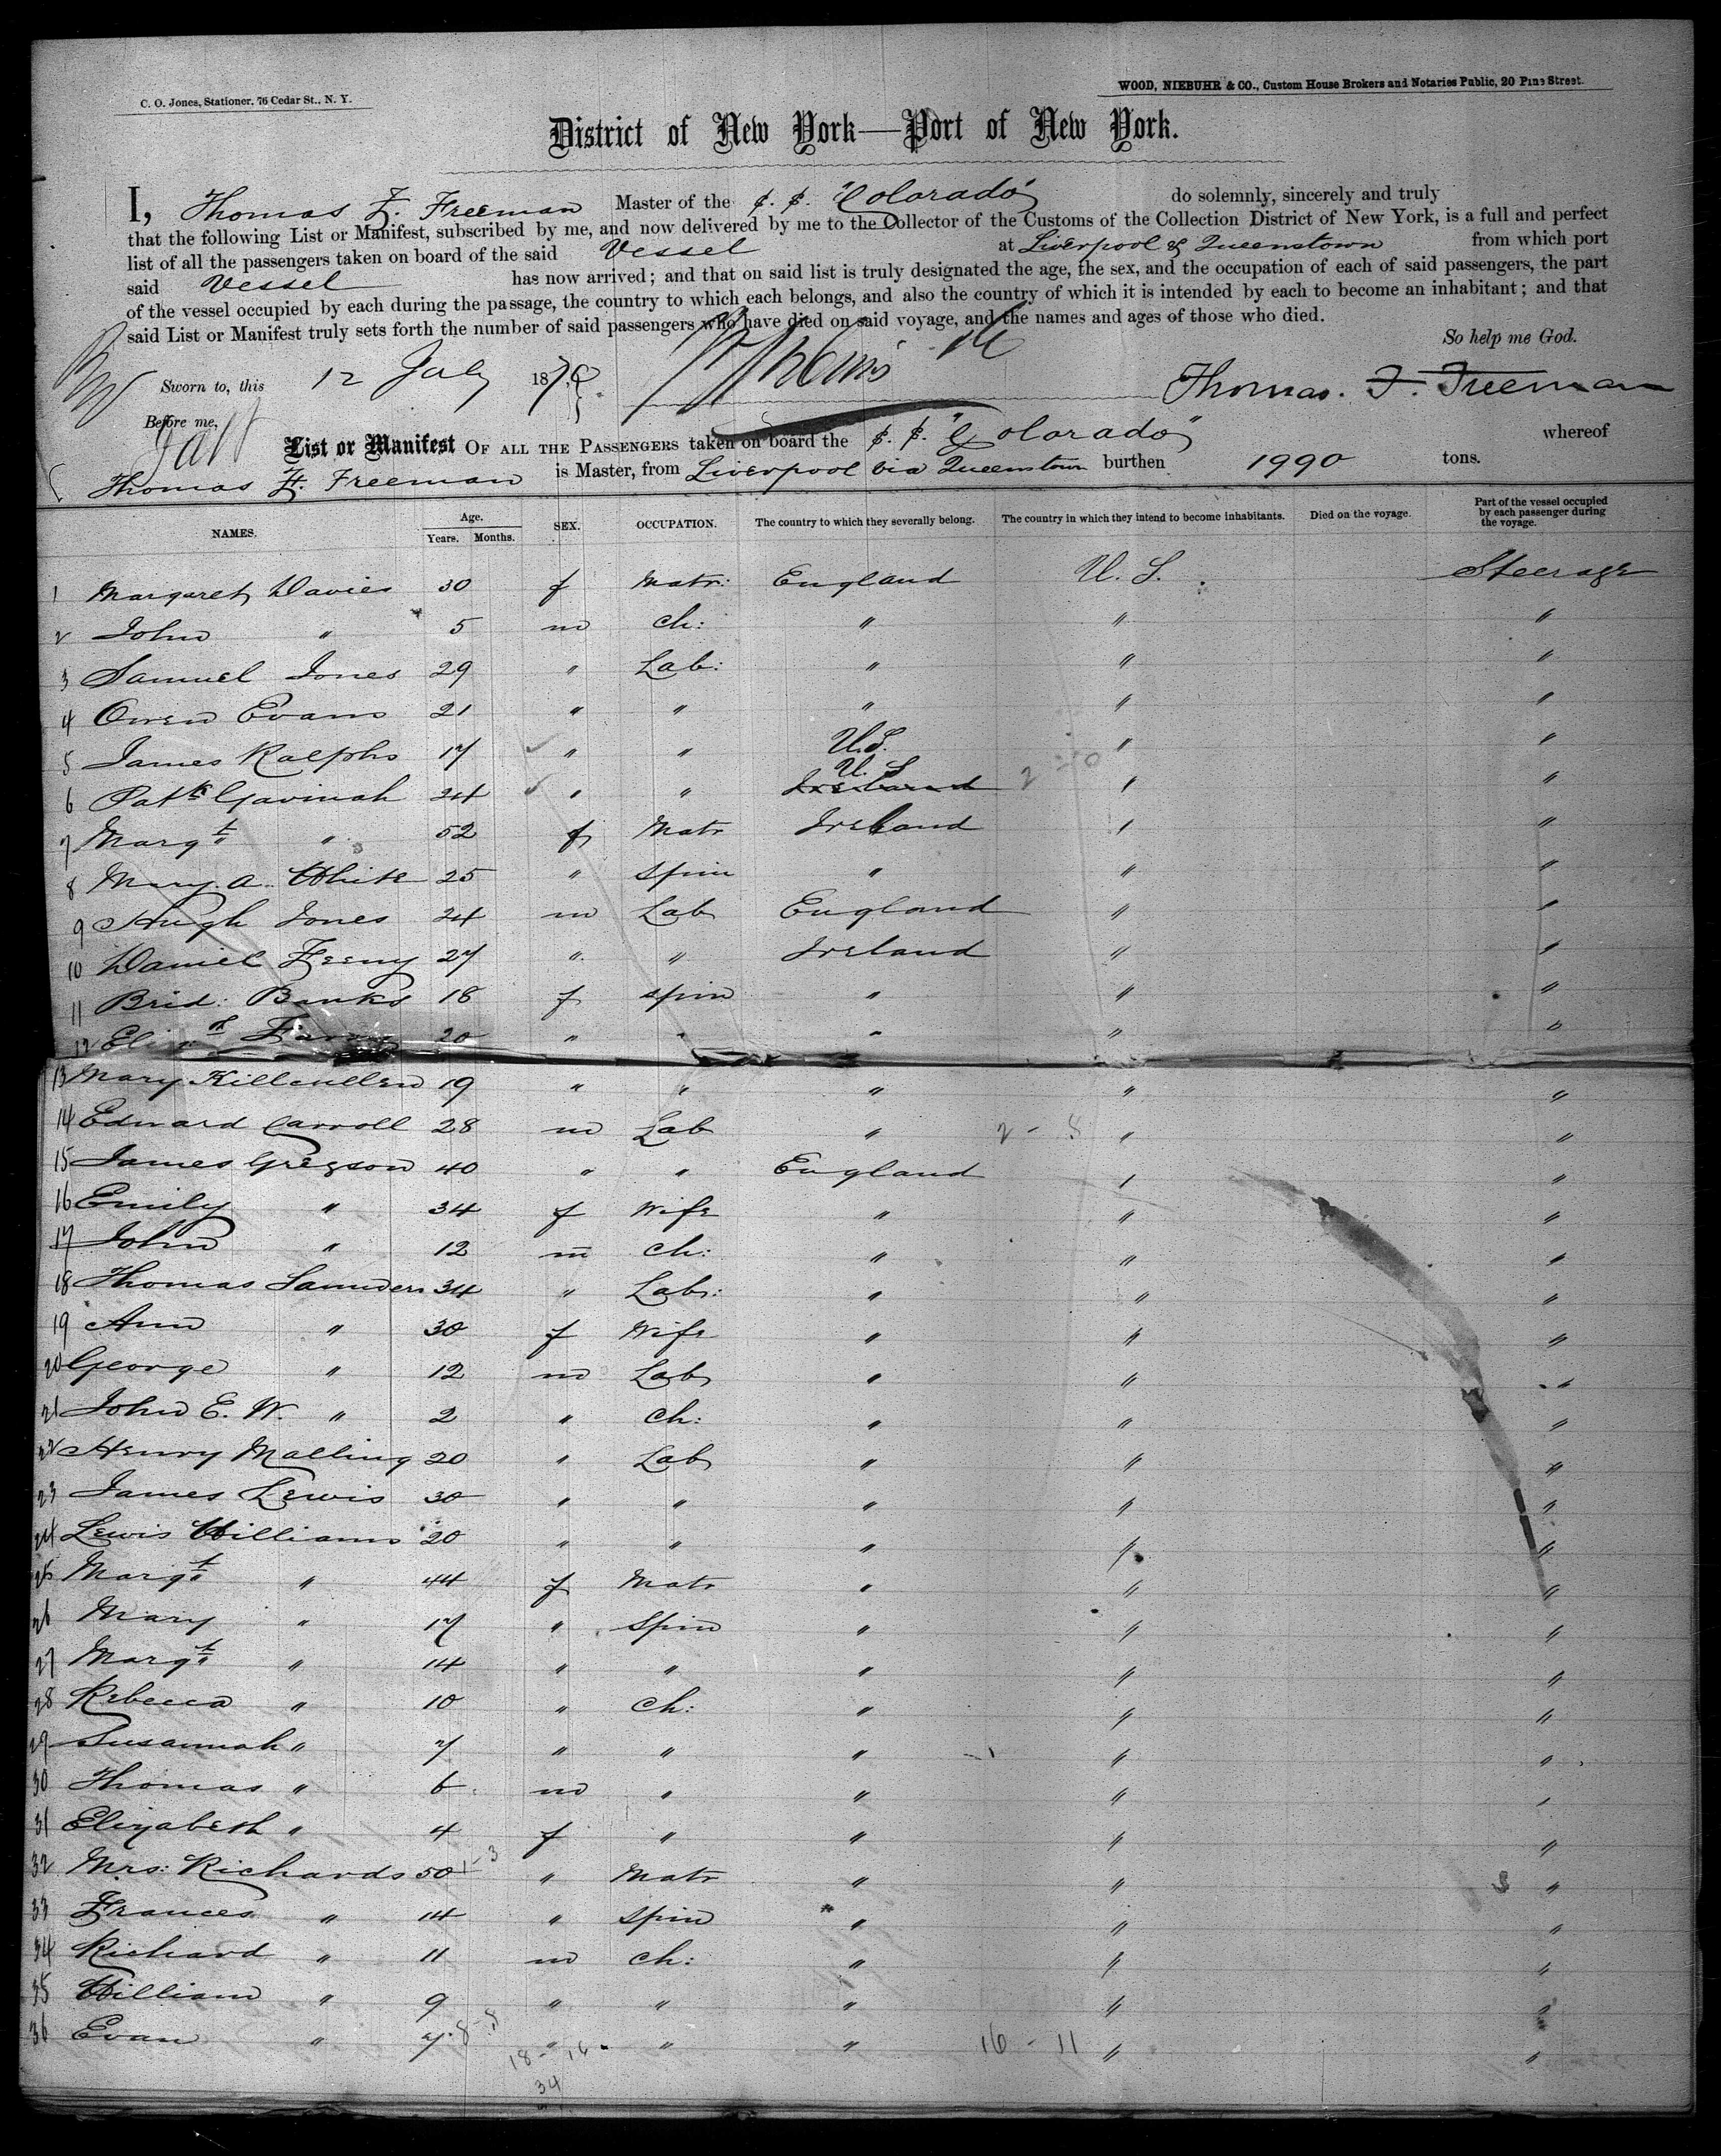 C. O. Jones, Stationer, 76 Cedar St., N. Y.
WOOD, NIEBUHR & CO., Custom House Brokers and Notaries Public, 20 Pine Street.
District of New York—Port of New York.
I, Thomas F. Freeman Master of the S. S. "Colorado" do solemnly, sincerely and truly
that the following List or Manifest, subscribed by me, and now delivered by me to the Collector of the Customs of the Collection District of New York, is a full and perfect
list of all the passengers taken on board of the said Vessel at Liverpool & Queenstown from which port
said Vessel has now arrived; and that on said list is truly designated the age, the sex, and the occupation of each of said passengers, the part
of the vessel occupied by each during the passage, the country to which each belongs, and also the country of which it is intended by each to become an inhabitant; and that
said List or Manifest truly sets forth the number of said passengers who have died on said voyage, and the names and ages of those who died.
So help me God.
Sworn to, this 12 July 187
Thomas. F. Freeman
Before me,
List or Manifest OF ALL THE PASSENGERS taken on board the S. S. "Colorado" whereof
Thomas F. Freeman is Master, from Liverpool via Queenstown burthen 1990 tons.
NAMES. Age. Years. Months. SEX. OCCUPATION. The country to which they severally belong. The country in which they intend to become inhabitants. Died on the voyage. Part of the vessel occupied by each passenger during the voyage.
1 Margaret Davies 30 f Matr: England U. S. Steerage
2 John " 5 m Ch: " " "
3 Samuel Jones 29 " Lab: " " "
4 Owen Evans 21 " " " " "
5 James Ralphs 17 " " U.S. " "
6 Patk Gavinah 24 " " U. S Ireland " "
7 Margt " 52 f Matr Ireland " "
8 Mary. A. White 25 " Spin " " "
9 Hugh Jones 24 m Lab England " "
10 Daniel Feeny 27 " " Ireland " "
11 Brid: Banks 18 f Spin " " "
12 20 " " " " "
13 Mary Killcullen 19 " " " " "
14 Edward Carroll 28 m Lab " 2 - " "
15 James Gregson 40 " " England " "
16 Emily " 34 f Wife " " "
17 John " 12 m Ch: " " "
18 Thomas Saunders 34 " Lab: " " "
19 Ann " 30 f Wife " " "
20 George " 12 m Lab " " "
21 John E. W. " 2 " Ch: " " "
22 Henry Malling 20 " Lab " " "
23 James Lewis 30 " " " " "
24 Lewis Williams 20 " " " " "
25 Margt " 44 f Matr " " "
26 Mary " 17 " Spin " " "
27 Margt " 14 " " " " "
28 Rebecca " 10 " Ch: " " "
29 Susannah " 7 " " " " "
30 Thomas " 6 m " " " "
31 Elizabeth " 4 f " " " "
32 Mrs: Richards 50 1-3 " Matr " " "
33 Frances " 14 " Spin " " "
34 Richard " 11 m Ch: " " "
35 William " 9 " " " " "
36 Evan " 7 8-8 " " " 16 - 11 " "
18 - 16
34